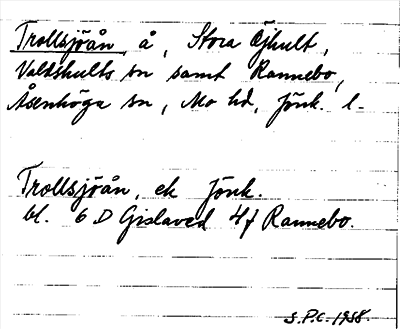 Trollsjöån, å, Stora Öjhult,
Valdshults sn samt Rannebo,
Åsenhöga sn, Mo hd, Jönk. l.
Trollsjöån, ek Jönk.
bl. 6 D Gislaved 4f Rannebo.
S.P.C. 1958.